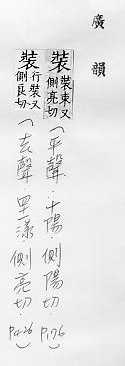 廣韻
裝 裝束又側亮切 (平聲·十陽·側陽切·P.176)
裝 行裝又側良切 (去聲· 漾·側亮切·P426)